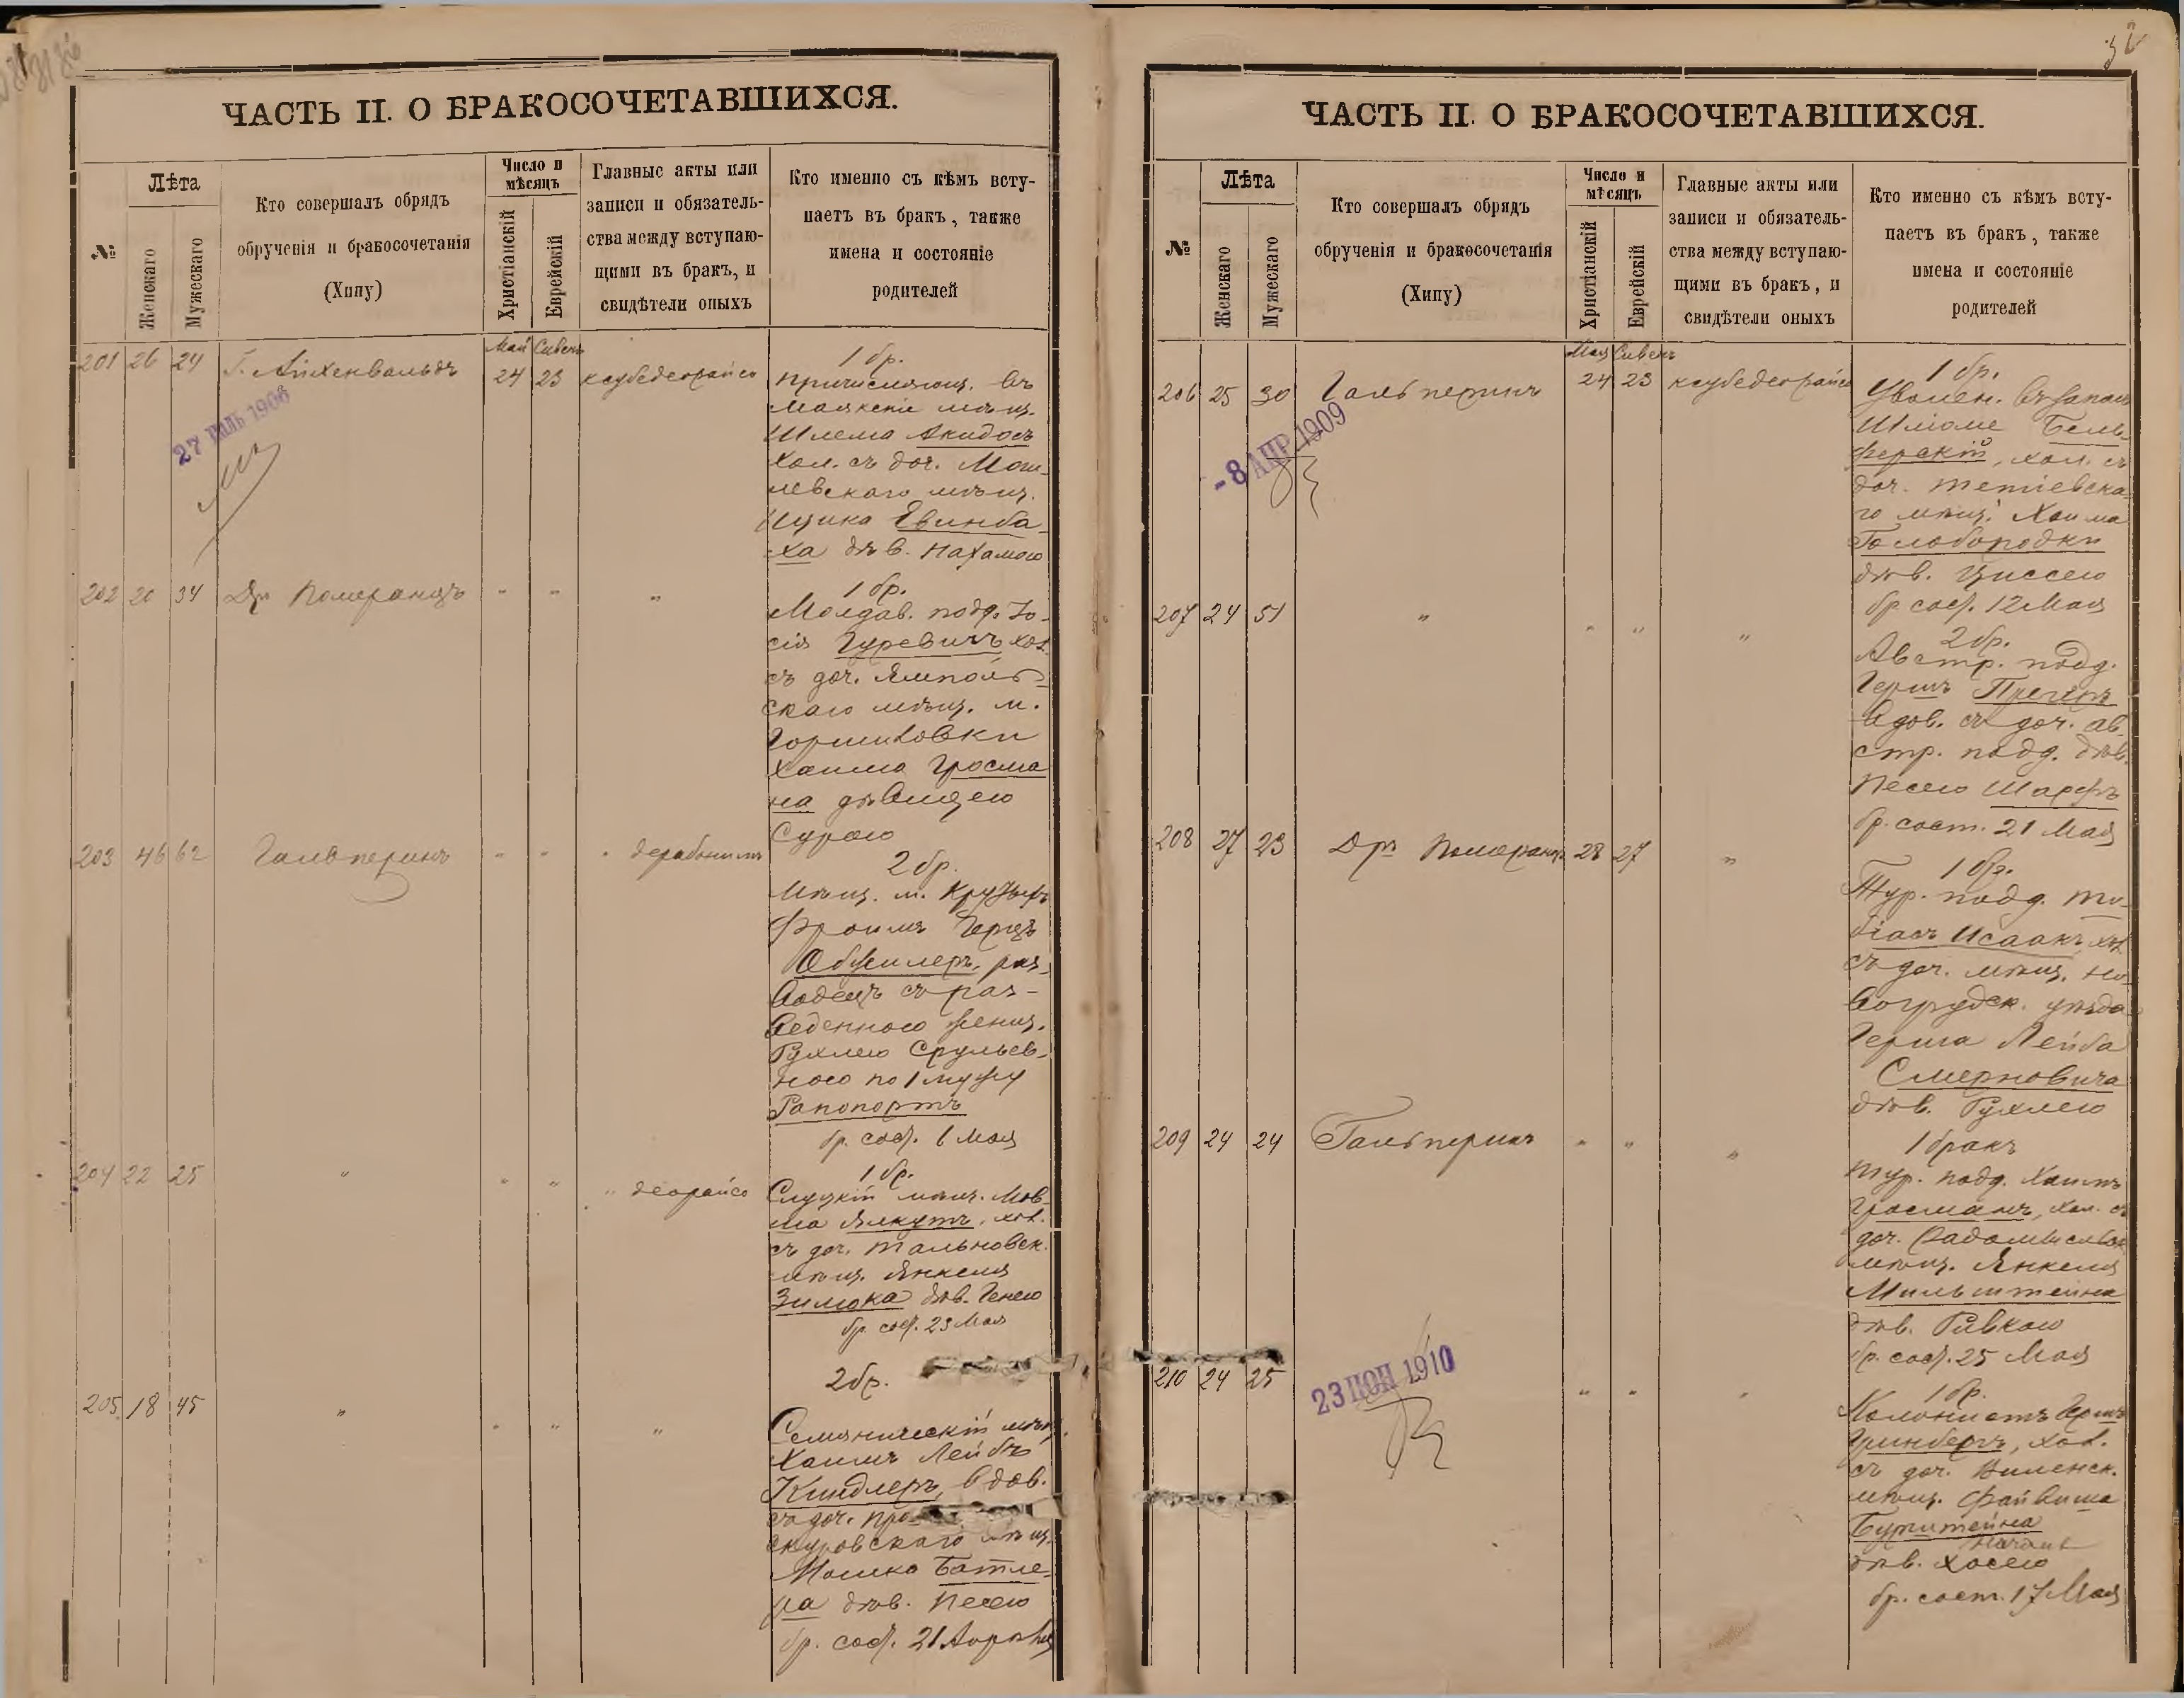 ЧАСТЬ II. О БРАКОСОЧЕТАВШИХСЯ.
№
Лѣта
Женскаго
Мужескаго
Кто совершалъ обрядъ
обрученія и бракосочетанія
(Хипу)
Число и
мѣсяцъ
Христіанскій
Еврейскій
Главные акты или
записи и обязатель-
ства между вступаю-
щими въ бракъ, и
свидѣтели оныхъ
Кто именно съ кѣмъ всту-
паетъ въ бракъ, также
имена и состояніе
родителей
Май Сивенъ
201 26 24 Г. Айхенвальдъ 24 23 ксубедеорайсо
27 1906
1 бр.
Маякскіе мѣщ.
Шлема Акидосъ
хол. съ доч. Моги-
левскаго мѣщ.
Ицика Евинба-
ха дѣв. Нахамою
202 20 34 Др. Померанцъ " " "
1 бр.
Молдав. подд. Іо-
сія Гуревичъ хол.
съ доч. Ямполь-
скаго мѣщ. м.
Горшковки
Хаима Гросма
на дѣвицею
Сурою
203 46 62 Гальперинъ " " " дерабонимъ
2 бр.
Мѣщ. м.
Фроимъ Герцъ
раз-
водецъ съ раз-
веденною женщ.
Рухлею Срульев-
ною по 1 мужу
Рапопортъ
бр. сост. 6 Мая
204 22 25 " " " " деорайсо
1 бр.
Слуцкій мѣщ. Мов-
ша Ялкутъ, хол.
съ доч. Тальновск.
мѣщ. Янкеля
Зимака дѣв. Генею
бр. сост. 23 Мая
205 18 45 " " " "
2 бр.
мѣщ.
Хаимъ Лейбъ
Киндлеръ, вдов.
съ доч. Про-
скуровскаго мѣщ.
Мошко Батле-
ра дѣв. Песею
бр. сост. 21 Апрѣля
ЧАСТЬ II. О БРАКОСОЧЕТАВШИХСЯ.
№
Лѣта
Женскаго
Мужескаго
Кто совершалъ обрядъ
обрученія и бракосочетанія
(Хипу)
Число и
мѣсяцъ
Христіанскій
Еврейскій
Главные акты или
записи и обязатель-
ства между вступаю-
щими въ бракъ, и
свидѣтели оныхъ
Кто именно съ кѣмъ всту-
паетъ въ бракъ, также
имена и состояніе
родителей
Мая Сивенъ
206 25 30 Гальперинъ 24 23 ксубедеорайсо
-8 АПР. 1909
1 бр.
Уволен. въ запасъ
Шломе Бель-
ферскій, хол. съ
доч. Тетіевска-
го мѣщ. Хаима
Голобородки
дѣв. Циссею
бр. сост. 12 Мая
207 24 51 " " " "
2 бр.
Австр. подд.
Гершъ Прегеръ
вдов. съ доч. ав-
стр. подд. дѣв.
Песею Шарфъ
бр. сост. 21 Мая
208 27 23 Дръ Померанцъ 28 27 "
1 бр.
Тур. подд. То-
біасъ Исаакъ, хол.
съ доч. мѣщ. Но-
вогрудск. уѣзда
Герша Лейба
Смерновича
дѣв. Рухлею
209 24 24 Гальперинъ " " "
1 бракъ
Тур. подд. Хаимъ
Гросманъ, хол. съ
доч. Радомысльск.
мѣщ. Янкеля
Мильштейна
дѣв. Ривкою
бр. сост. 25 Мая
210 24 25 " " "
23 ІЮН 1910
1 бр.
Колонистъ Гершъ
Гринбергъ, хол.
съ доч. Виленск.
мѣщ. Файвиша
Бурштейна
дѣв. Хасею
бр. сост. 17 Мая